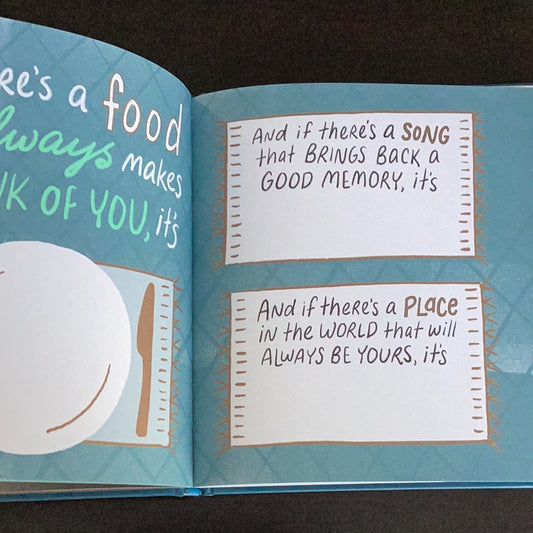 RE'S A food
lways makes
NK OF YOU, it's
And if there's a SONG
that BRINGS BACK a
GOOD MEMORY, it's
And if there's a PLACE
in the WORLD that will
ALWAYS BE YOURS, it's